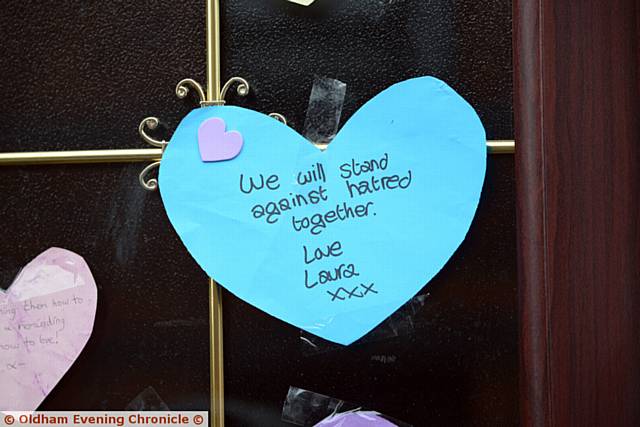 We will stand
against hatred
together.
Love
Laura
xxx
then how to
how to love!
© Oldham Evening Chronicle ©